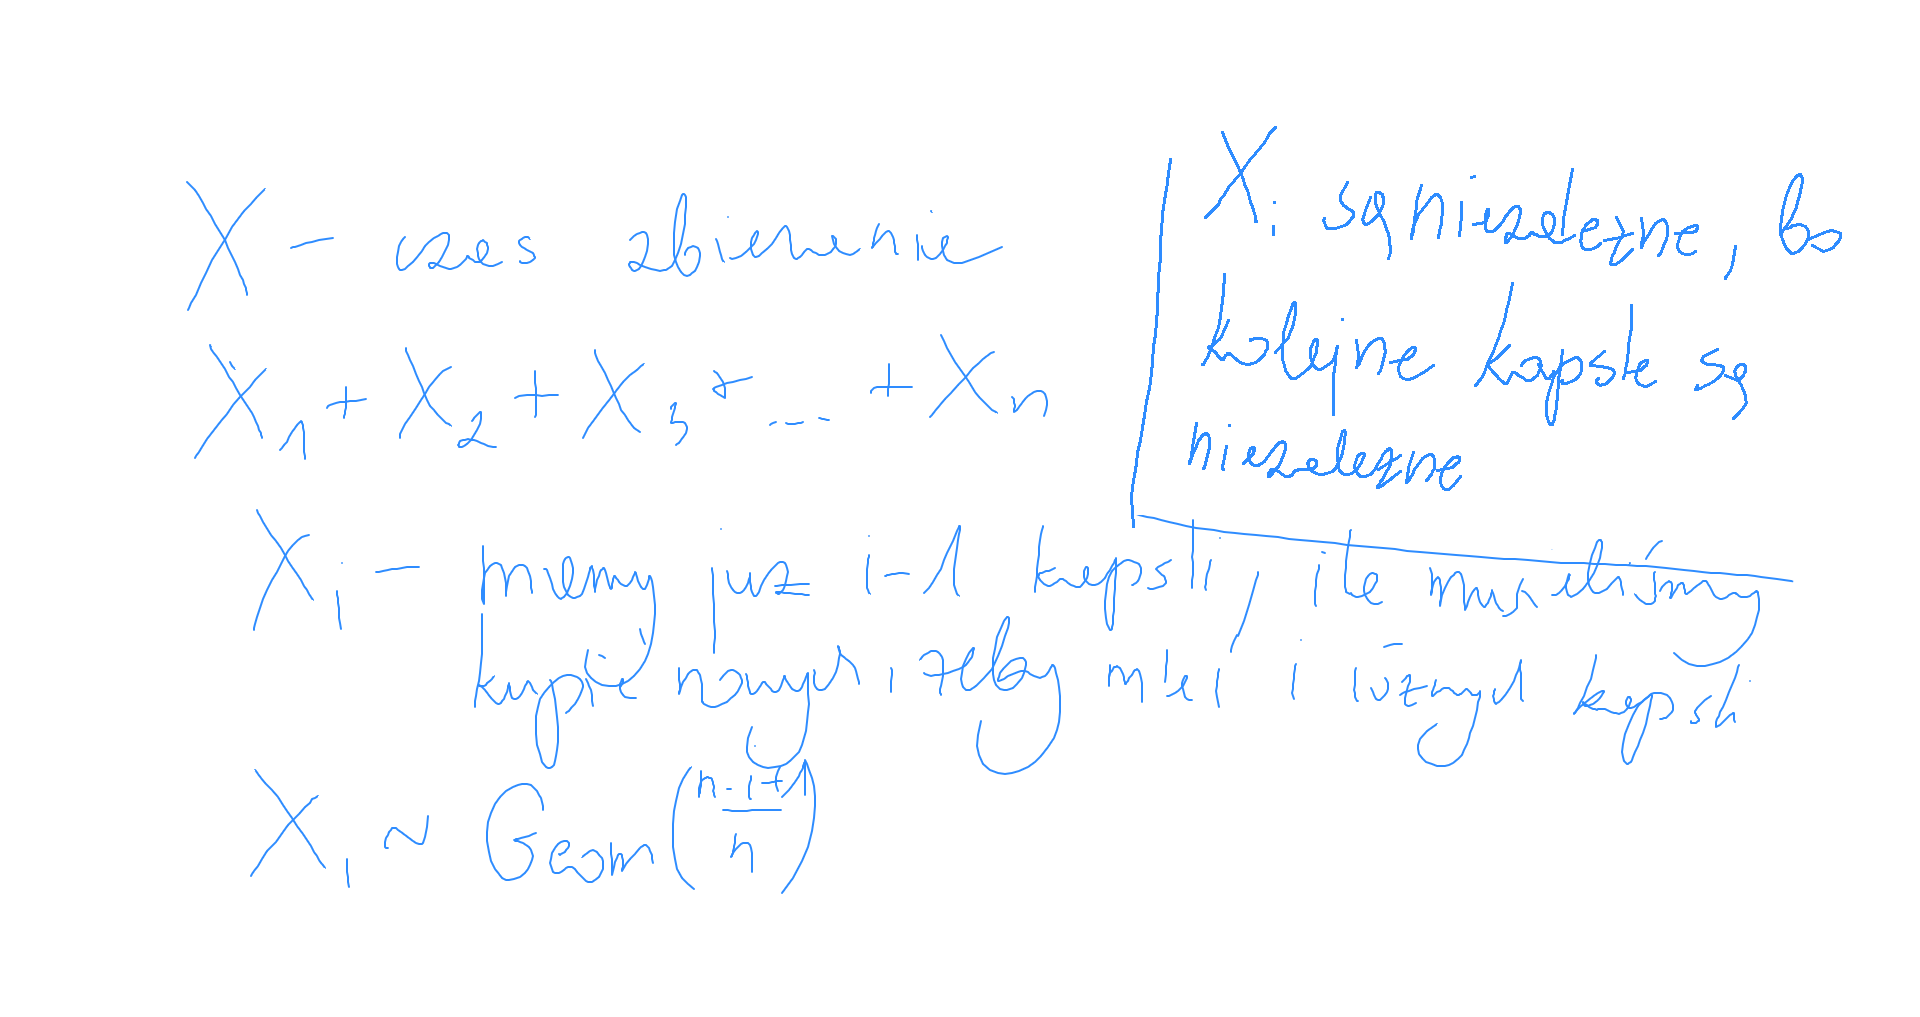 X - czas zbierania
X₁ + X₂ + X₃ + ... + Xₙ
Xᵢ są niezależne, bo
kolejne kapsle są
niezależne
Xᵢ - mamy już i-1 kapsli, ile musieliśmy
kupić nowych, żeby mieć i różnych kapsli
Xᵢ ~ Geom((n-i+1)/n)